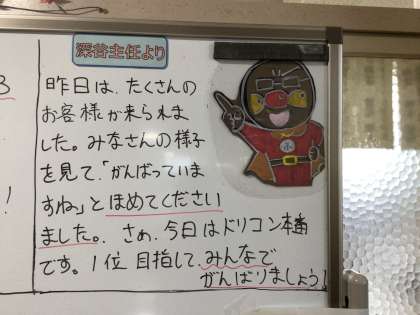 深谷主任より
昨日は、たくさんの
お客様が来られま
した。みなさんの様子
を見て、「がんばっていま
すね」とほめてください
ました。さぁ、今日はドリコン本番
です。1位目指して、みんなで
がんばりましょう!
3
!